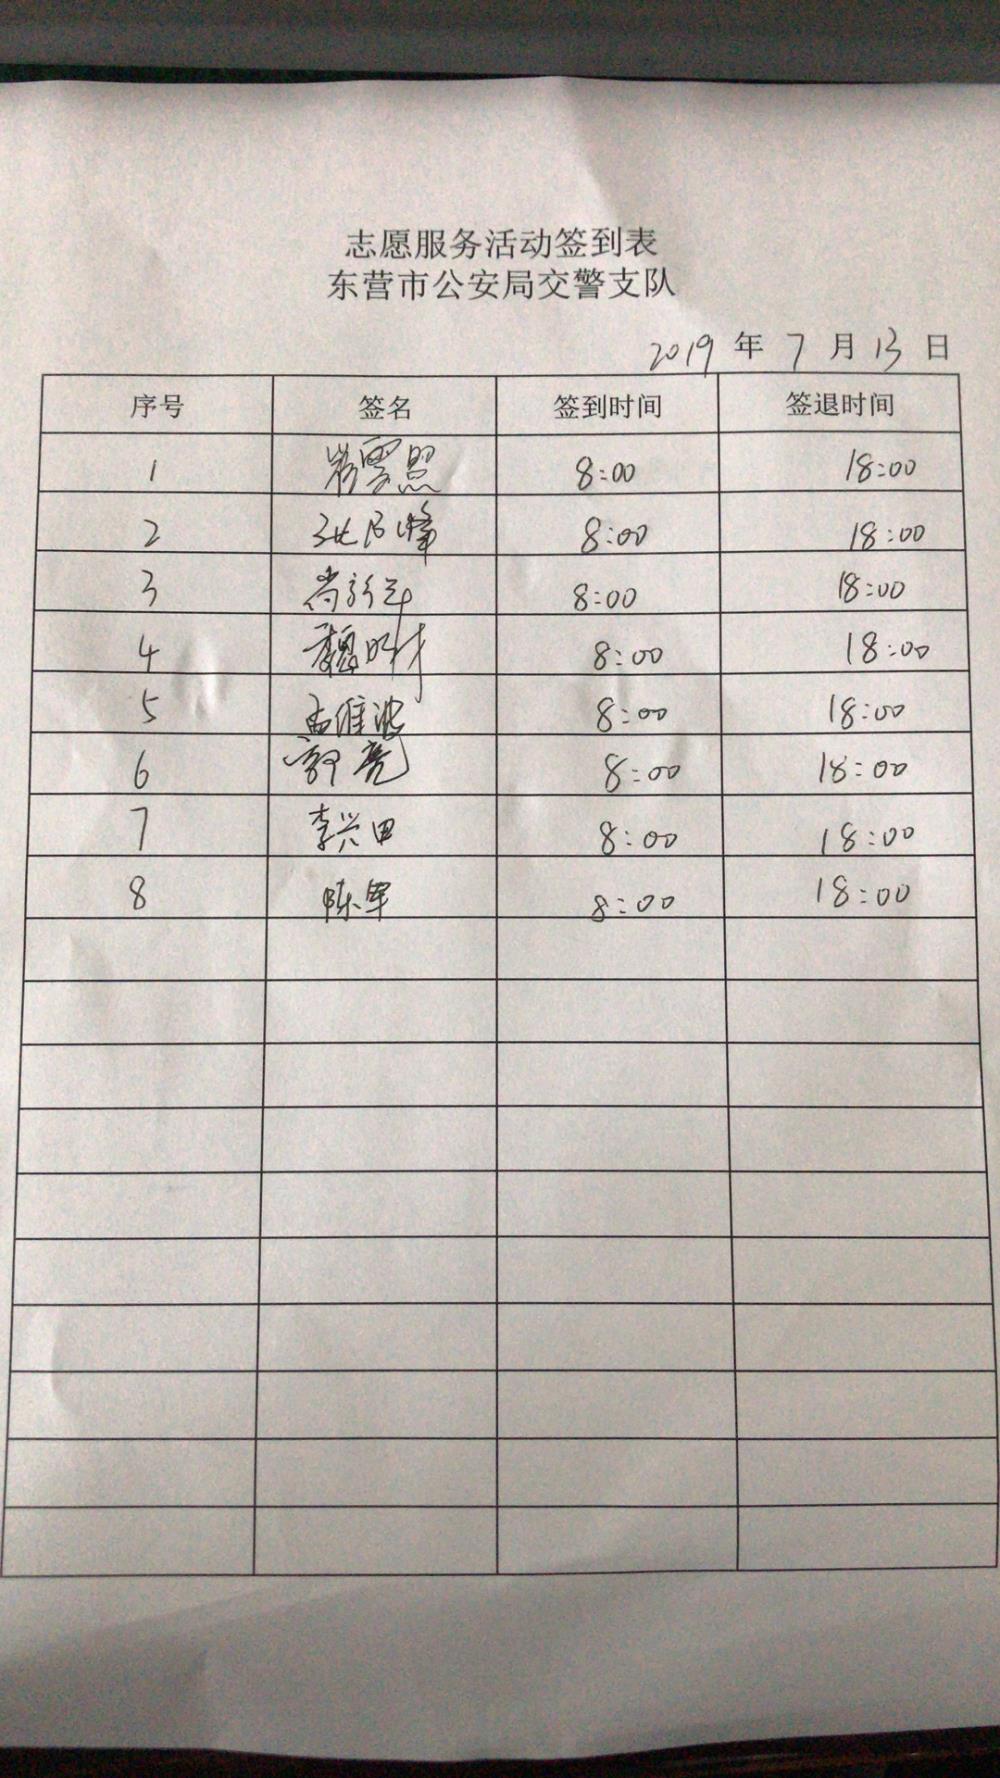 志愿服务活动签到表
东营市公安局交警支队
2019 年 7 月 13 日
序号 签名 签到时间 签退时间
1 8:00 18:00
2 8:00 18:00
3 8:00 18:00
4 8:00 18:00
5 孟维波 8:00 18:00
6 郭亮 8:00 18:00
7 李兴田 8:00 18:00
8 陈军 8:00 18:00